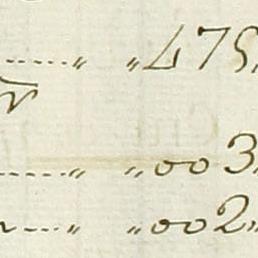 ..... „ „ 475„
..... „ „ 003„
... „ „ 002„